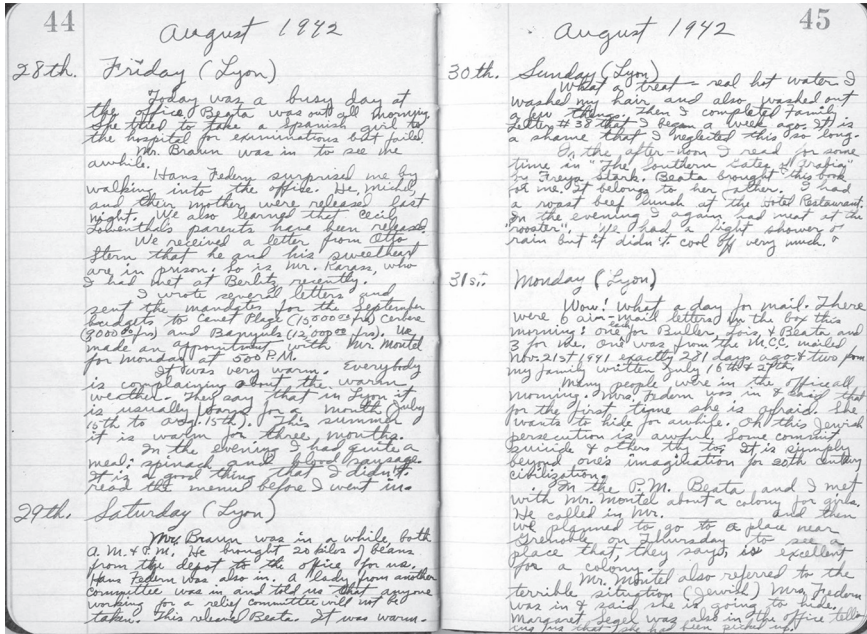 44
August 1942
28th. Friday (Lyon)
Today was a busy day at
the office. Beata was out all morning.
She tried to take a Spanish girl to
the hospital for examinations but failed.
Mr. Braun was in to see me
awhile.
Hans Federn surprised me by
walking into the office. He, Michel
and their mother were released last
night. We also learned that Cecil
Lowenthal's parents have been released.
We received a letter from Otto
Stern that he and his sweetheart
are in prison. So is Mr. Karass, who
I had met at Berlitz recently.
I wrote several letters and
sent the mandates for the September
budgets to Canet Plage
and Banyuls We
made an appointment with Mr. Montel
for Monday at 500 P.M.
It was very warm. Everybody
is complaining about the warm
weather. They say that in Lyon it
is usually for a month (July
15th to Aug. 15th). This summer
it is warm for three months.
In the evening I had quite a
meal: spinach and blood sausage.
It is a good thing that I didn't
read the menu before I went in.
29th. Saturday (Lyon)
Mr. Braun was in a while both
A.M. & P.M. He brought 20 kilos of beans
from the depot to the office for us.
Hans Federn was also in. A lady from another
committee was in and told us that anyone
working for a relief committee will not be
taken. This relieved Beata. It was warm.
45
August 1942
30th. Sunday (Lyon)
What a treat - real hot water. I
washed my hair and also washed out
a few things. Then I completed Family
Letter #38 that I began a week ago. It is
a shame that I neglected this so long.
In the after-noon I read for some
time in "The Southern Gates of Arabia"
by Freya Stark. Beata brought this book
for me. It belongs to her father. I had
a roast beef lunch at the Hotel Restaurant.
In the evening I again had meat at the
"rooster". We had a light shower of
rain but it didn't cool off very much.
31st. Monday (Lyon)
Wow! What a day for mail. There
were 6 air-mail letters in the box this
morning: one each for Buller, Lois, & Beata and
3 for me. One was from the M.C.C. mailed
Nov. 21st 1941 exactly 281 days ago & two from
my family written July 16th & 27th.
Many people were in the office all
morning. Mrs. Federn was in & said that
for the first time she is afraid. She
wants to hide for awhile. Oh this Jewish
persecution is awful. Some commit
suicide & others try to. It is simply
beyond one's imagination for 20th century
civilization.
In the P.M. Beata and I met
with Mr. Montel about a colony for girls.
He called in Mr. and then
we planned to go to a place near
Grenoble on Thursday to see a
place that, they say, is excellent
for a colony.
Mr. Montel also referred to the
terrible situation (Jewish) Mrs. Federn
was in & said she is going to hide.
Margaret Segel was also in the office telling
us that she had been picked up.